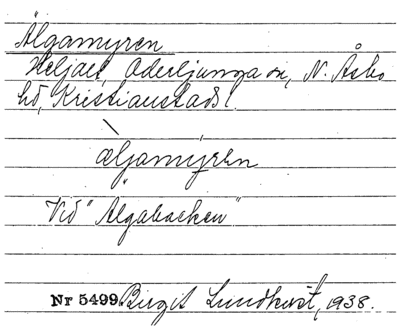 Älgamyren
Heljaet, Oderljunga sn, N. Åsbo
hd, Kristianstads l.
æljamýren
Vid "Älgabacken"
Nr 5499. Birgit Lundkvist, 1938.